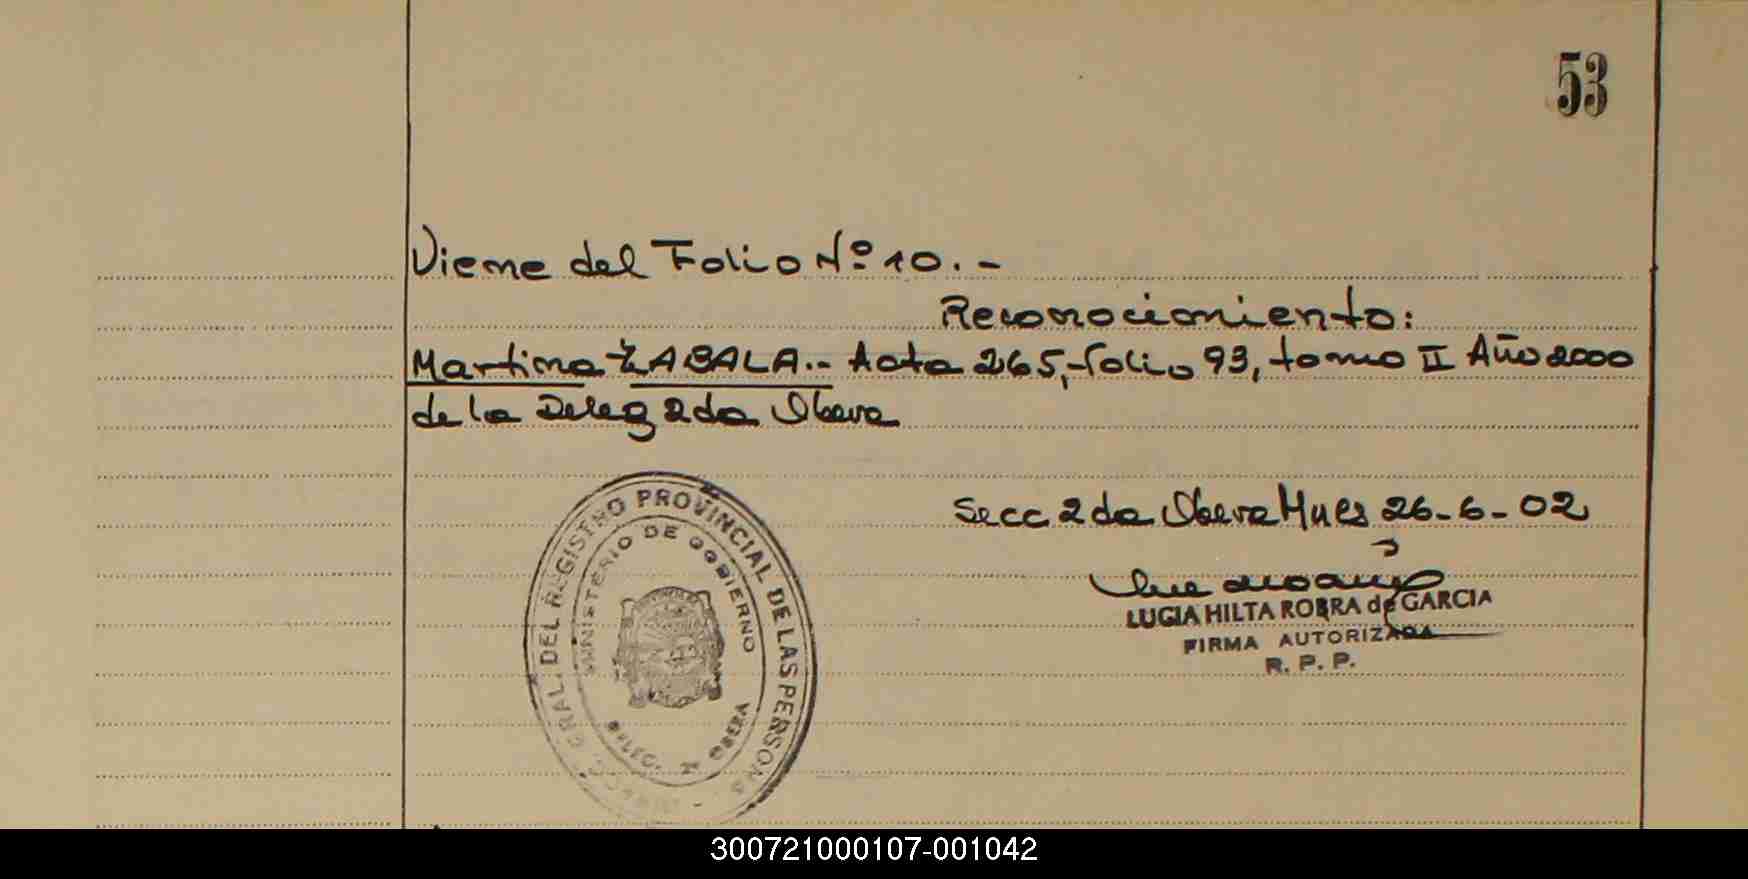 53
Viene del Folio Nº 10.-
Reconocimiento:
Martina ZABALA.- Acta 265, Folio 93, tomo II Año 2000
de la Deleg 2da Obera
Secc 2da Obera Mnes 26-6-02
LUCIA HILTA ROBRA de GARCIA
FIRMA AUTORIZADA
R. P. P.
GRAL. DEL REGISTRO PROVINCIAL DE LAS PERSONAS
MINISTERIO DE GOBIERNO
2ª OBERA
300721000107-001042